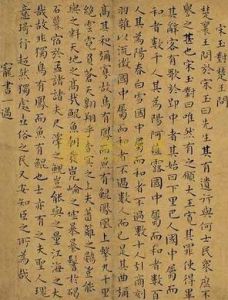 宋玉對楚王問
楚襄王問於宋玉曰先生其有遺行與何士民眾庶不
譽之甚也宋玉對曰唯然有之願大王寬其罪使得畢
其辭客有歌於郢中者其始曰下里巴人國中屬而和
者數千人其為陽阿薤露國中屬而和者數百
人其為陽春白雪國中屬而和者不過數十人引商刻
羽雜以流徵國中屬而和者不過數人而已是其曲彌
高其和彌寡故鳥有鳳而魚有鯤鳳凰上擊九千里
絕雲霓負蒼天翱翔乎杳冥之上夫蕃籬之鷃豈能
與之料天地之高哉鯤魚朝發崑崙之墟暴鬐於碣
石暮宿於孟諸夫尺澤之鯢豈能與之量江海之大
哉故非獨鳥有鳳而魚有鯤也士亦有之夫聖人瑰
意琦行超然獨處世俗之民又安知臣之所為哉
寵書一過